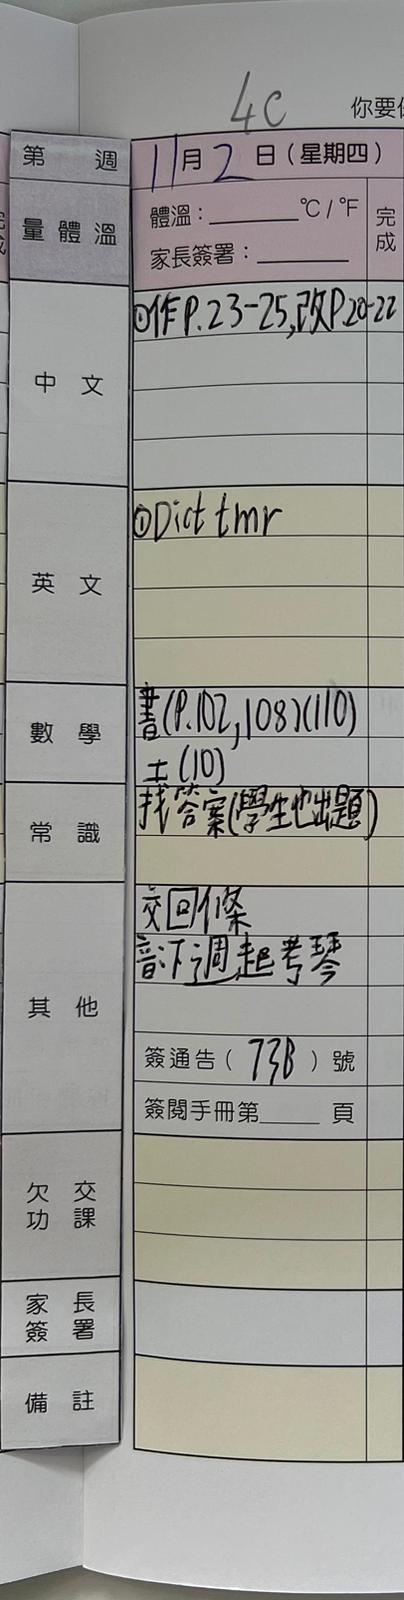 4C
你要
第 週
11月2日(星期四)
量體溫
體溫:______℃/℉
完成
家長簽署:______
中文
①作P.23-25,改P.20-22
英文
①Dict tmr
數學
書(P.102,108)(110)
土(10)
常識
找答案(學生也出題)
其他
交回條
音下週起考琴
簽通告(73B)號
簽閱手冊第____頁
欠交功課
家長簽署
備註